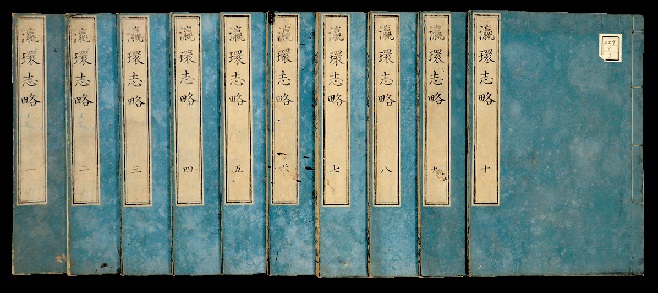 瀛環志略 一
瀛環志略 二
瀛環志略 三
瀛環志略 四
瀛環志略 五
瀛環志略 六
瀛環志略 七
瀛環志略 八
瀛環志略 九
瀛環志略 十